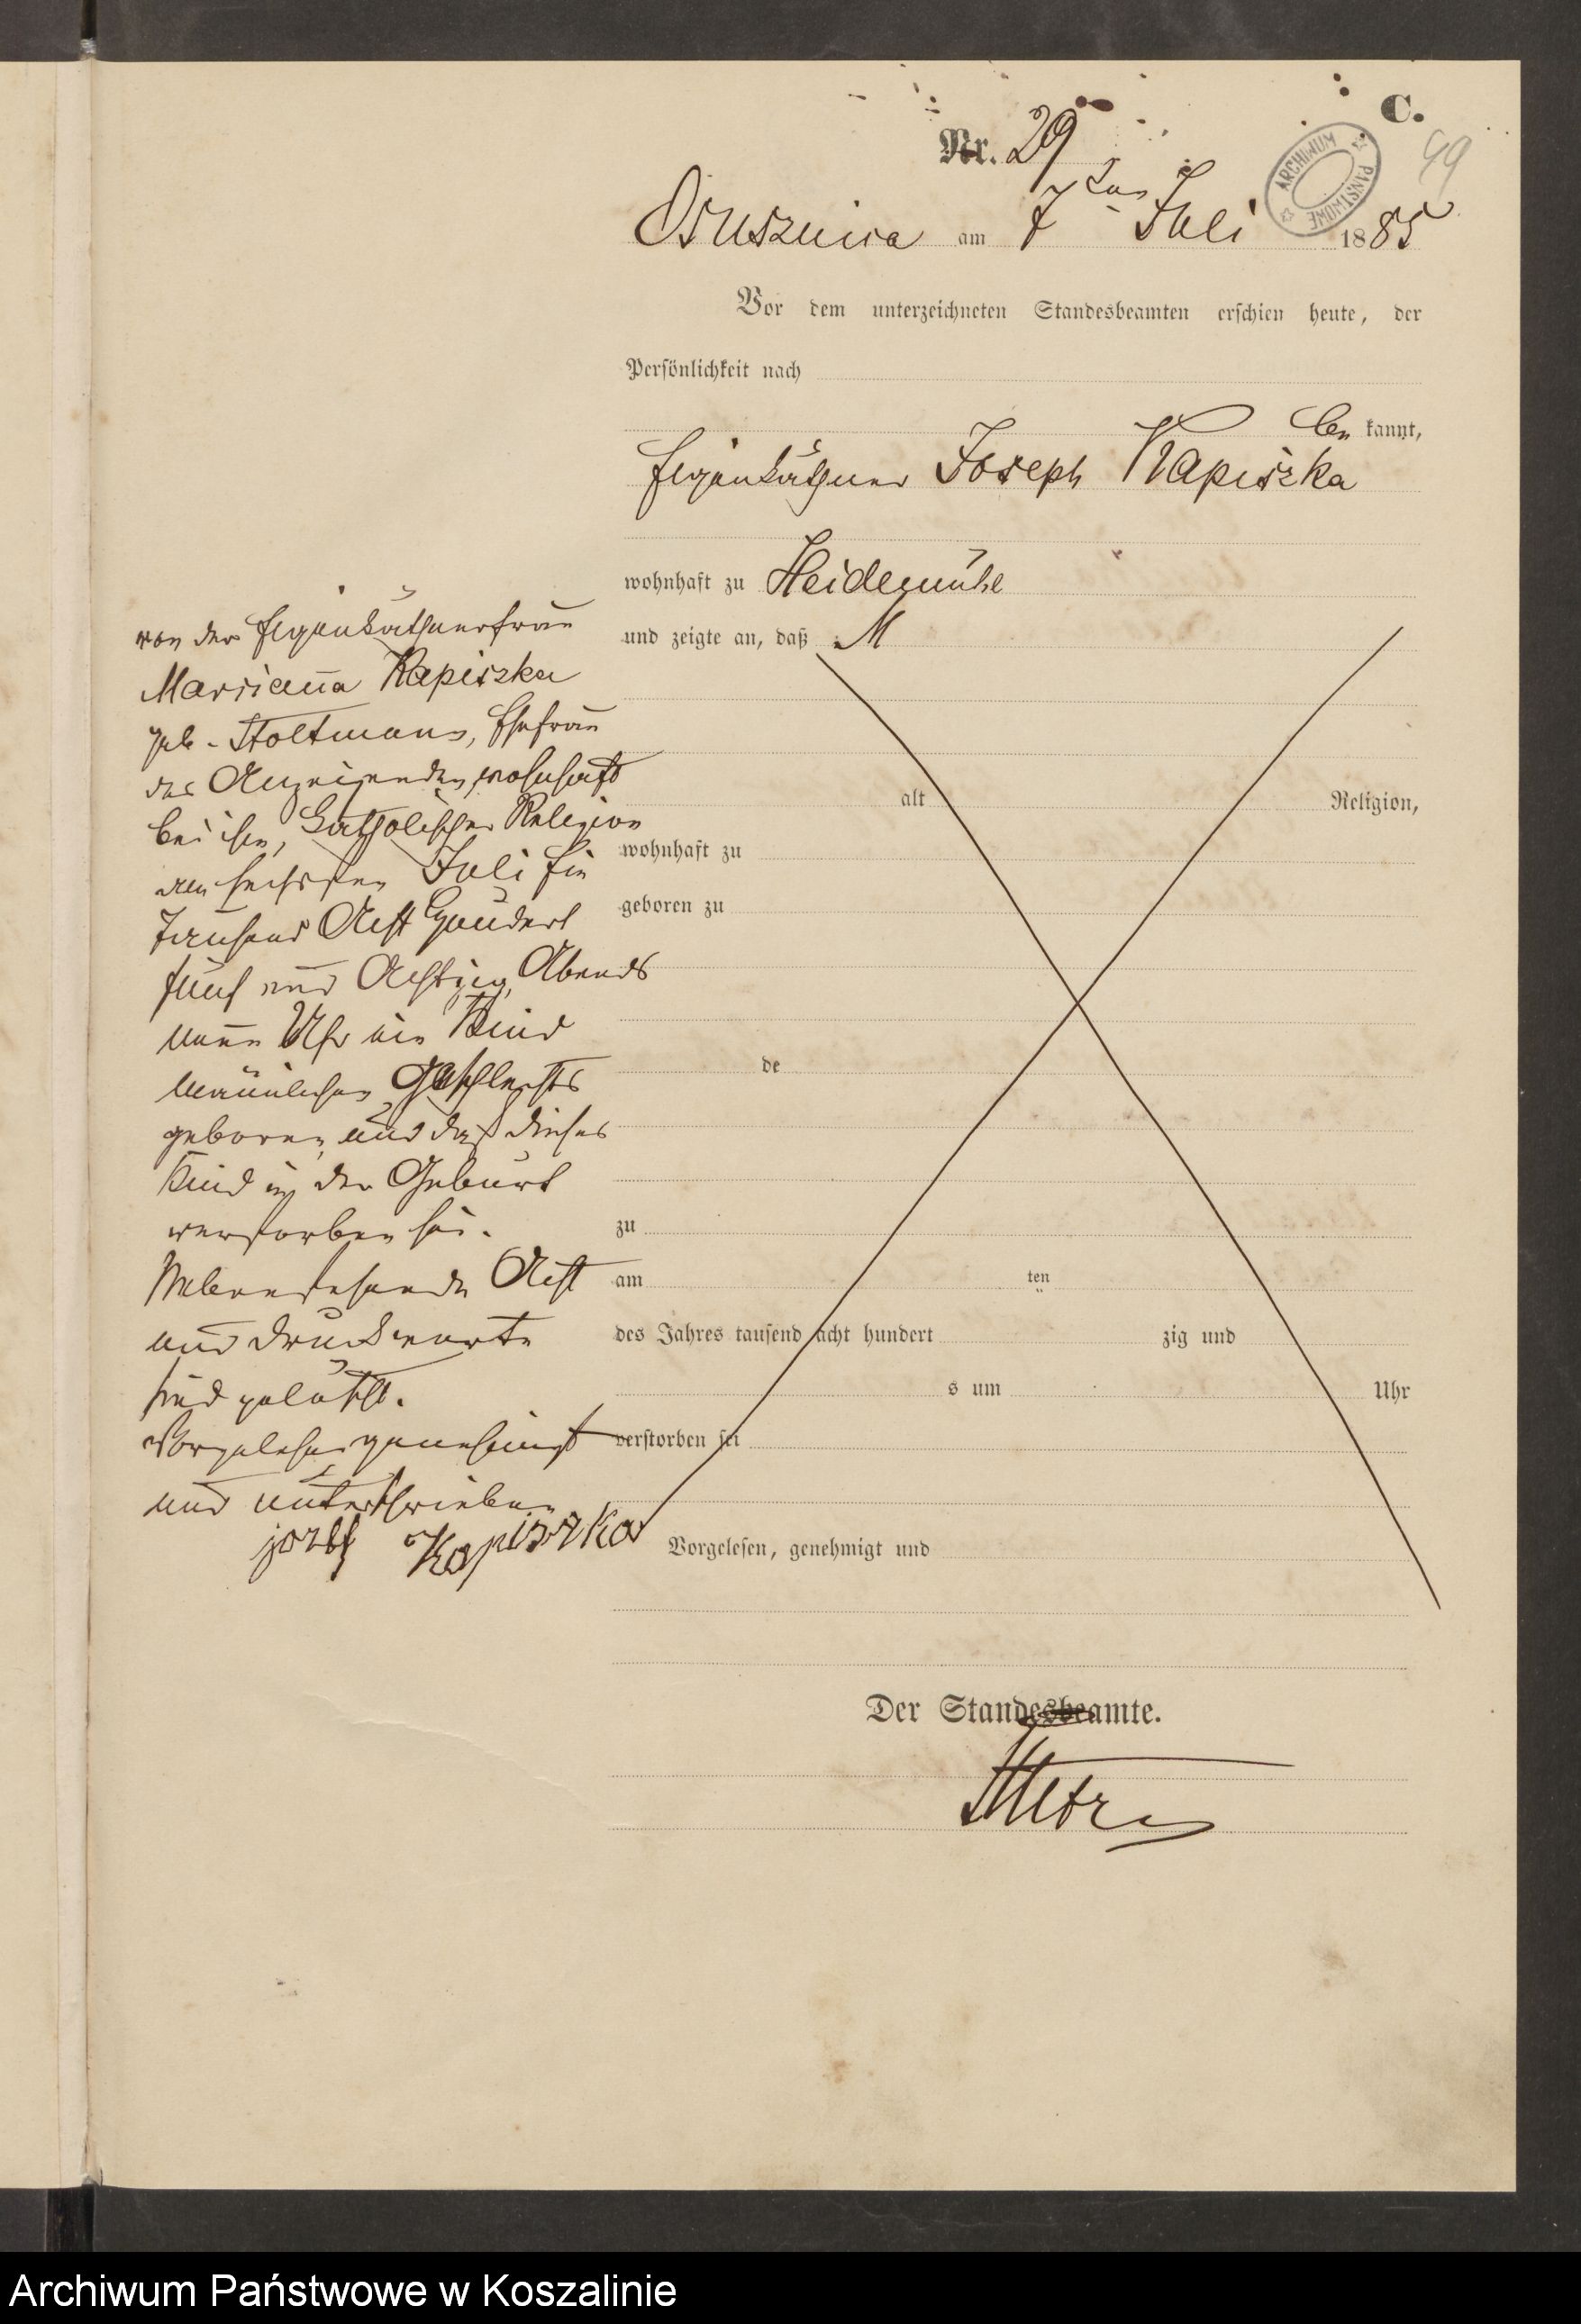 C.
Nr. 29
49
ARCHIWUM PAŃSTWOWE
Osusznica am 7ten Juli 1885
Vor dem unterzeichneten Standesbeamten erschien heute, der
Persönlichkeit nach
be kannt,
Eigenkäthner Joseph Kapiszka
wohnhaft zu Heidemühl
und zeigte an, daß
von der Eigenkäthnerfrau
Marrianna Kapiszka
geb. Stoltmann, Ehefrau
des Anzeigenden, wohnhaft
bei ihm, katholischer Religion
am sechsten Juli Ein
Tausend Acht Hundert
fünf und Achtzig, Abends
neun Uhr ein Kind
männlichen Geschlechts
geboren und daß dieses
Kind in der Geburt
verstorben sei.
Nebenstehende Acht
und Druckworte
sind gelöscht.
Vorgelesen genehmigt
und unterschrieben
jozef Kapiszka
alt Religion,
wohnhaft zu
geboren zu
de
zu
am ten
des Jahres tausend acht hundert zig und
s um Uhr
verstorben sei
Vorgelesen, genehmigt und
Der Standesbeamte.
Archiwum Państwowe w Koszalinie